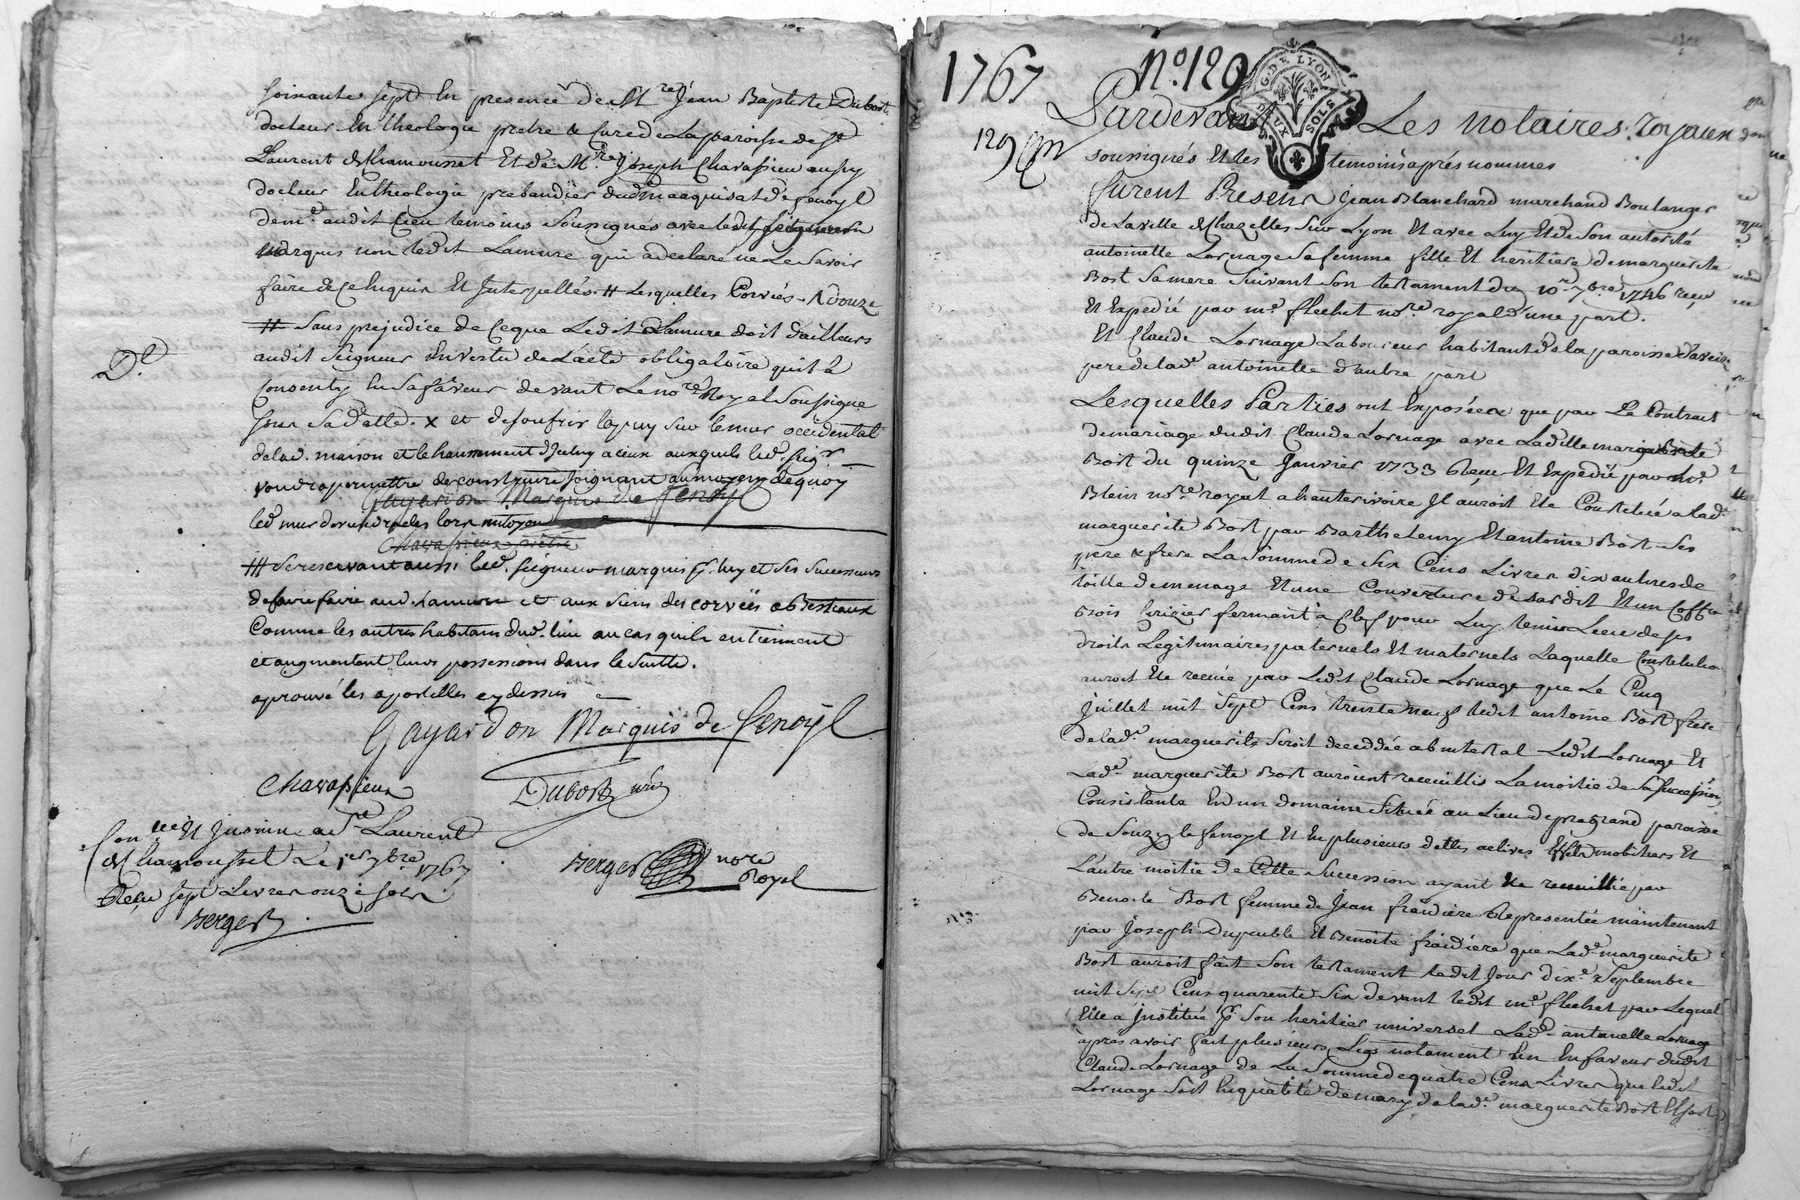 soixante sept En presence de Mre Jean Baptiste Dubost
docteur En theologie pretre & Curé de La paroisse de St
Laurent de Chamousset Et de Mre Joseph Chavassieu aussy
docteur En theologie prebandier dud marquisat de fenoyl
dem.t audit lieu temoins soussignés avec ledit seigneur
marquis non ledit Lamure qui a declaré ne Le Savoir
faire de Ce Enquis Et Interpellés # Lesquelles Corvées
# Sans prejudice de Ceque Ledit Lamure doit d'ailleurs
audit Seigneur En vertu de L'acte obligatoire quil a
Consenty En Sa faveur devant Le nore Royal Soussigné
Sous Sa datte. x et de soufrir lapuy sur le mur occidental
delad. maison et le haussement d'iceluy a ceux auxquels led. seigr
voudra permettre de construire joignant au moyen de quoy
Gayardon Marquis de Fenoyl
led mur deviendra des lors mitoyen
Chavassieux prêtre
D.l
### Se reservant aussi led. seigneur marquis p. luy et ses successeurs
de faire faire aud. Lamure et aux siens des corvées a Bestiaux
Comme les autres habitans dud. lieu au cas quils en tiennent
et augmentent leurs possessions dans la suitte.
aprouvé les apostilles cy dessus
Gayardon Marquis de Fenoyl
Chavassieux Dubost curé
Con.lé Et Insinué a St Laurent
de Chamousset Le 1er 7bre 1767
Reçu sept Livres onze sols
Berger
Berger nore Royal
1767 No. 129
Pardevant Les Notaires Royaux
129
G. DE LYON
DEUX SOLS
soussignés Et les temoins après nommes
furent Presens Jean Blanchard marchand Boulanger
de La ville de Chazelles Sur Lyon Et avec Luy Et de Son autorité
antoinette Lornage Sa femme fille Et heritiere de marguerite
Bost Sa mere Suivant Son testament du 10e 7bre 1746 reçu
Et Expedié par me flechet nore royal d'une part.
Et Claude Lornage Laboureur habitant de la paroisse d'aveize
pere de lad.e antoinette d'autre part
Lesquelles Parties ont Exposé que par Le Contrait
de mariage dudit Claude Lornage avec Ladite marguerite
Bost du quinze Janvier 1733 Reçu Et Expedié par me
Blein nore royal a hauterivoire Il auroit Eté Constitué a lad.e
marguerite Bost par Barthelemy Et antoine Bost Ses
pere & frere La Somme de Six Cens Livres dix aulnes de
toille de menage Et une Couverture de sardit Et un Coffre
Bois Cerizier fermant à Clef pour Luy tenir Lieu de ses
droits Legitimaires paternels Et maternels Laquelle Constitution
auroit Eté reçue par Ledt Claude Lornage que Le Cinq
Juillet mil Sept Cens trente neuf ledit antoine Bost frere
de lad.e marguerite Seroit deceddé ab intestat Ledit Lornage Et
Lad.e marguerite Bost auroient recueillis La moitié de sa succession
Consistante En un domaine Situé au Lieu de pragrand paroisse
de Souzy le fenoyl Et En plusieurs dettes actives Effets mobiliers Et
L'autre moitié de Cette Succession ayant Eté recueillie par
Benoite Bost femme de Jean fraidière Representée maintenant
par Joseph Dupeuble Et Benoite fraidiere que Lad.e marguerite
Bost auroit fait Son testament ledit Jour dix.e Septembre
mil Sept Cens quarente Six devant ledit me flechet par Lequel
Elle a Institué p. Son heritier universel Lad.e antoinette Lornage
après avoir fait plusieurs Legs notament un En faveur dudit
Claude Lornage de La Somme de quatre Cens Livres que ledit
Lornage Soit En qualité de mary de lad.e marguerite Bost Et